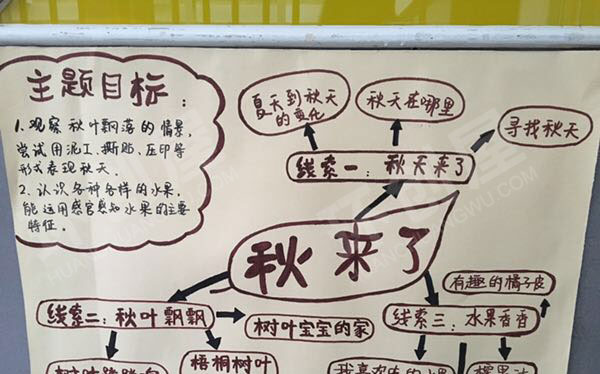 主题目标：
1.观察秋叶飘落的情景，
尝试用泥工、撕贴、压印等
形式表现秋天。
2.认识各种各样的水果，
能运用感官感知水果的主要
特征。
夏天到秋天
的变化
秋天在哪里
寻找秋天
线索一：秋天来了
秋来了
有趣的橘子皮
线索二：秋叶飘飘
树叶宝宝的家
线索三：水果香香
梧桐树叶